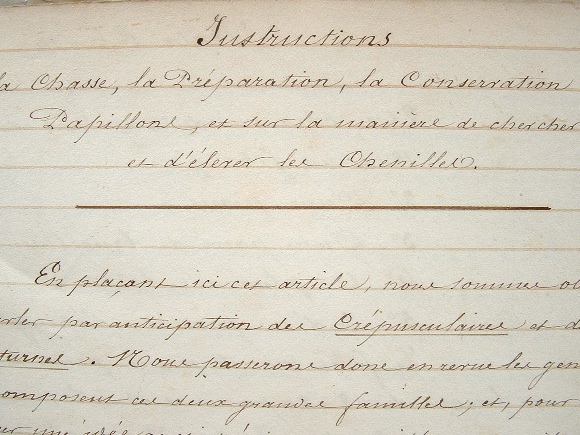 Instructions
la Chasse, la Préparation, la Conservation
Papillons, et sur la manière de chercher
et d'élever les Chenilles.
En plaçant ici cet article, nous sommes
par anticipation des Crépusculaires et
Nous passerons donc en revue les
composent ces deux grandes familles; et, pour
une idée